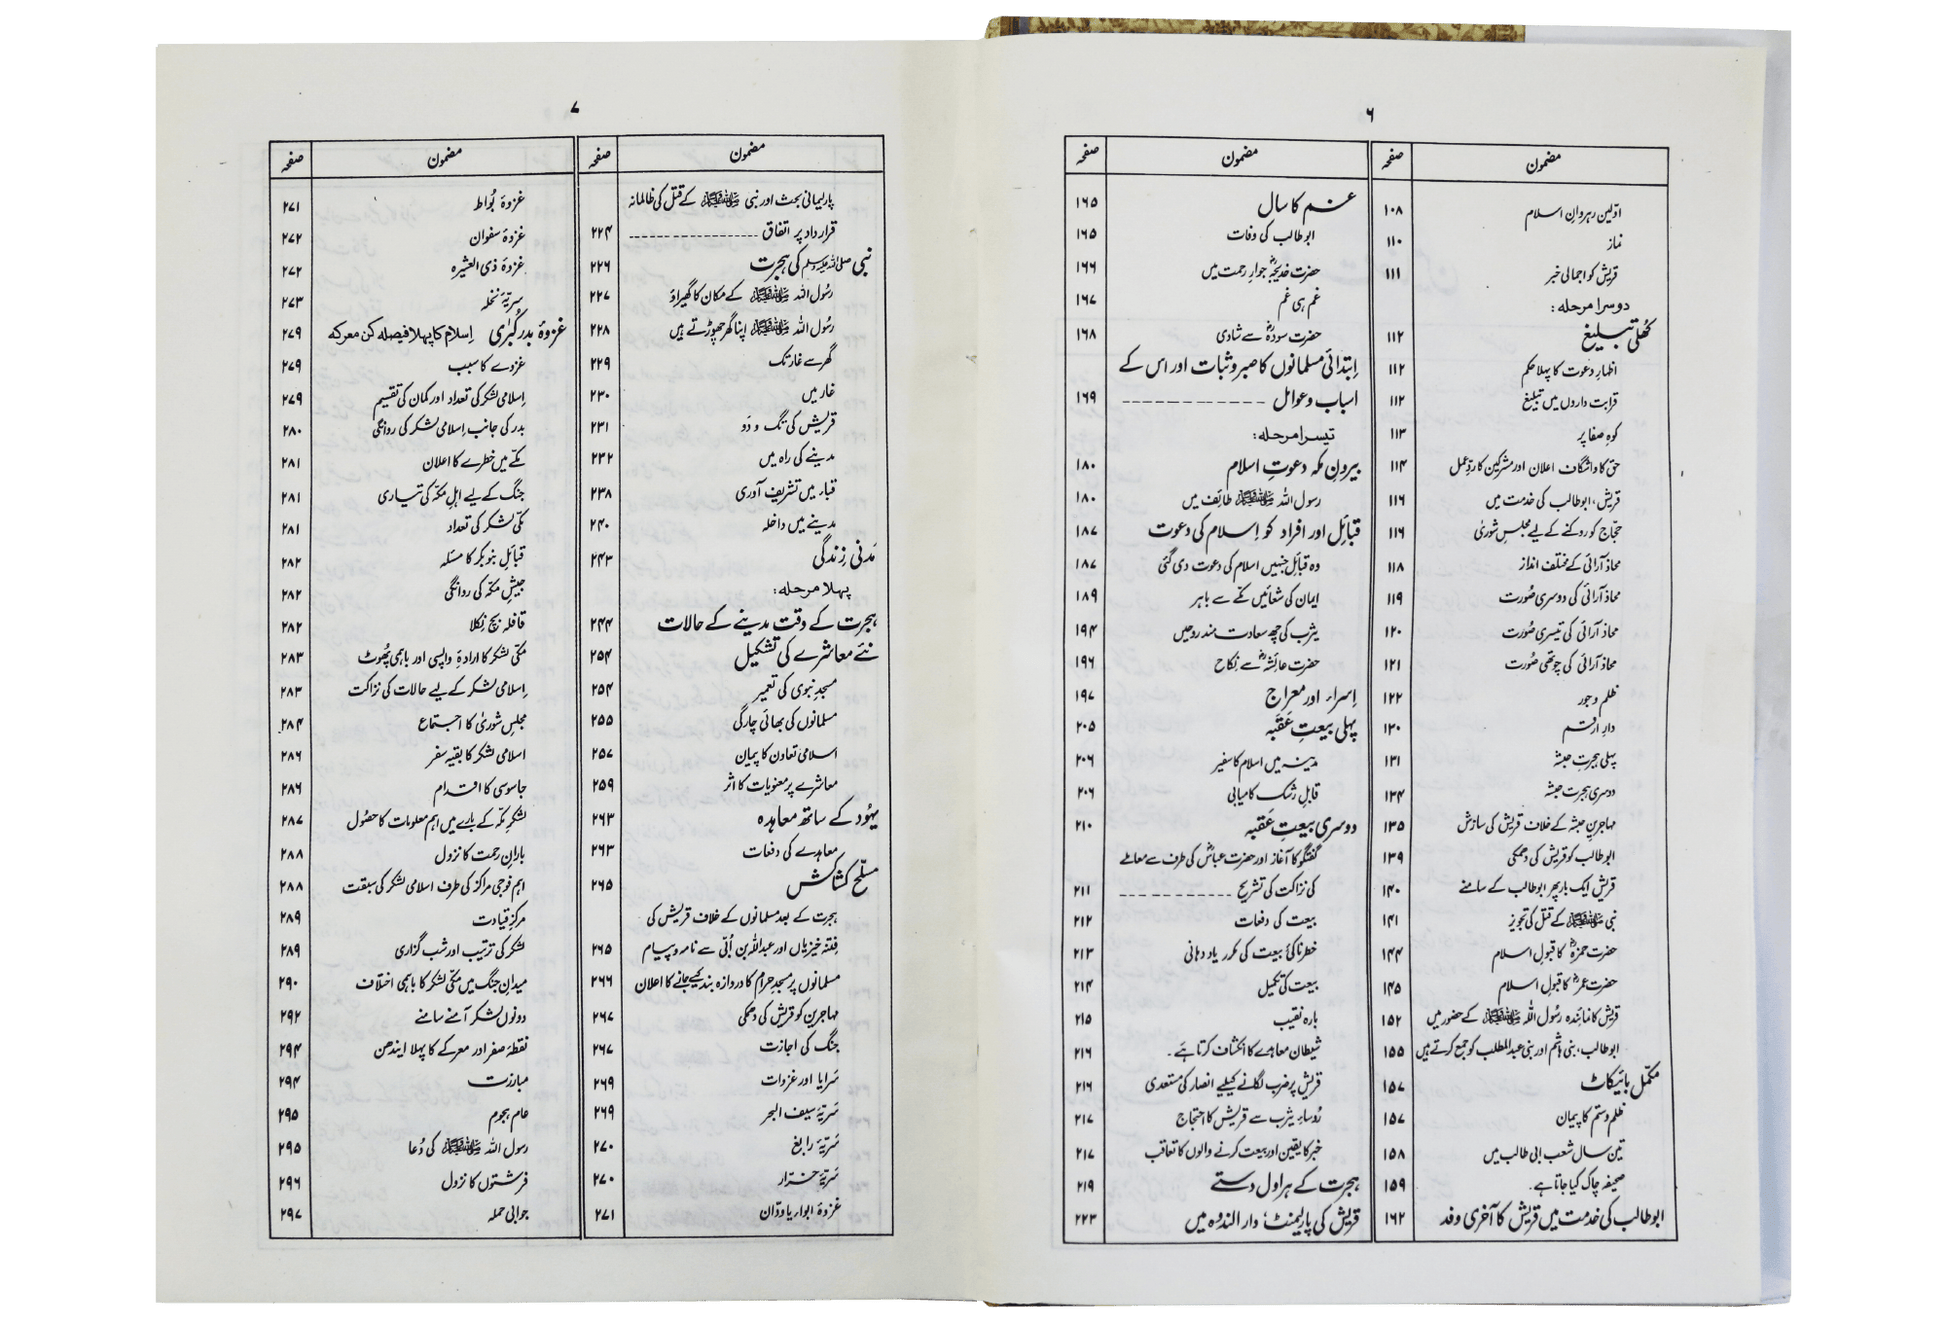 ۶
مضمون صفحہ
اوّلین رہروانِ اسلام ۱۰۸
نماز ۱۱۰
قریش کو اجمالی خبر ۱۱۱
دوسرا مرحلہ:
کھلی تبلیغ ۱۱۲
اظہارِ دعوت کا پہلا حکم ۱۱۲
قرابت داروں میں تبلیغ ۱۱۲
کوہِ صفا پر ۱۱۳
حق کا واشگاف اعلان اور مشرکین کا ردِّعمل ۱۱۴
قریش، ابوطالب کی خدمت میں ۱۱۶
حجّاج کو روکنے کے لیے مجلسِ شوریٰ ۱۱۶
محاذ آرائی کے مختلف انداز ۱۱۸
محاذ آرائی کی دوسری صُورت ۱۱۹
محاذ آرائی کی تیسری صُورت ۱۲۰
محاذ آرائی کی چوتھی صُورت ۱۲۱
ظلم و جور ۱۲۲
دارِ ارقم ۱۳۰
پہلی ہجرتِ حبشہ ۱۳۱
دوسری ہجرتِ حبشہ ۱۳۴
مہاجرینِ حبشہ کے خلاف قریش کی سازش ۱۳۵
ابوطالب کو قریش کی دھمکی ۱۳۹
قریش ایک بار پھر ابوطالب کے سامنے ۱۴۰
نبی ﷺ کے قتل کی تجویز ۱۴۱
حضرت حمزہؓ کا قبولِ اسلام ۱۴۴
حضرت عمرؓ کا قبولِ اسلام ۱۴۵
قریش کا نمائندہ رسُول اللہ ﷺ کے حضور میں ۱۵۲
ابوطالب، بنی ہاشم اور بنی عبدالمطلب کو جمع کرتے ہیں ۱۵۵
مکمّل بائیکاٹ ۱۵۷
ظلم و ستم کا پیمان ۱۵۷
تین سال شعب ابی طالب میں ۱۵۸
صحیفہ چاک کیا جاتا ہے۔ ۱۵۹
ابوطالب کی خدمت میں قریش کا آخری وفد ۱۶۲
مضمون صفحہ
غم کا سال ۱۶۵
ابوطالب کی وفات ۱۶۵
حضرت خدیجہؓ جوارِ رحمت میں ۱۶۶
غم ہی غم ۱۶۷
حضرت سودہؓ سے شادی ۱۶۸
اِبتدائی مسلمانوں کا صبر و ثبات اور اس کے
اسباب و عوامل ۱۶۹
تیسرا مرحلہ:
بیرونِ مکہ دعوتِ اسلام ۱۸۰
رسول اللہ ﷺ طائف میں ۱۸۰
قبائل اور افراد کو اِسلام کی دعوت ۱۸۷
وہ قبائل جنہیں اسلام کی دعوت دی گئی ۱۸۷
ایمان کی شعائیں مکّے سے باہر ۱۸۹
یثرب کی چھ سعادت مند روحیں ۱۹۴
حضرت عائشہؓ سے نکاح ۱۹۶
اِسراء اور معراج ۱۹۷
پہلی بیعتِ عَقَبہ ۲۰۵
مدینہ میں اسلام کا سفیر ۲۰۶
قابلِ رشک کامیابی ۲۰۶
دوسری بیعتِ عَقَبہ ۲۱۰
گفتگو کا آغاز اور حضرت عباسؓ کی طرف سے معاملے
کی نزاکت کی تشریح ۲۱۱
بیعت کی دفعات ۲۱۲
خطرناکیٔ بیعت کی مکرر یاد دہانی ۲۱۳
بیعت کی تکمیل ۲۱۴
بارہ نقیب ۲۱۵
شیطان معاہدے کا انکشاف کرتا ہے۔ ۲۱۶
قریش پر ضرب لگانے کیلیے انصار کی مستعدی ۲۱۶
رُوساءِ یثرب سے قریش کا احتجاج ۲۱۷
خبر کا یقین اور بیعت کرنے والوں کا تعاقب ۲۱۷
ہجرت کے ہراول دستے ۲۱۹
قریش کی پارلیمنٹ، دار الندوہ میں ۲۲۳
۷
مضمون صفحہ
پارلیمانی بحث اور نبی ﷺ کے قتل کی ظالمانہ
قرار داد پر اتفاق ۲۲۴
نبی ﷺ کی ہجرت ۲۲۶
رسُول اللہ ﷺ کے مکان کا گھیراؤ ۲۲۷
رسُول اللہ ﷺ اپنا گھر چھوڑتے ہیں ۲۲۸
گھر سے غار تک ۲۲۹
غار میں ۲۳۰
قریش کی تگ و دَو ۲۳۱
مدینے کی راہ میں ۲۳۲
قباء میں تشریف آوری ۲۳۸
مدینے میں داخلہ ۲۴۰
مَدنی زِندگی ۲۴۳
پہلا مرحلہ:
ہجرت کے وقت مدینے کے حالات ۲۴۴
نئے معاشرے کی تشکیل ۲۵۴
مسجدِ نبوی کی تعمیر ۲۵۴
مسلمانوں کی بھائی چارگی ۲۵۵
اسلامی تعاون کا پیمان ۲۵۷
معاشرے پر معنویات کا اثر ۲۵۹
یہُود کے ساتھ معاہدہ ۲۶۳
معاہدے کی دفعات ۲۶۳
مسلّح کشاکش ۲۶۵
ہجرت کے بعد مسلمانوں کے خلاف قریش کی
فِتنہ خیزیاں اور عبداللہ بن اُبّی سے نامہ و پیام ۲۶۵
مسلمانوں پر مسجد حرام کا دروازہ بند کیے جانے کا اعلان ۲۶۶
مہاجرین کو قریش کی دھمکی ۲۶۷
جنگ کی اجازت ۲۶۷
سَرایا اور غزوات ۲۶۹
سَریّۂ سیف البحر ۲۶۹
سَریّۂ رابغ ۲۷۰
سَریّۂ خرّار ۲۷۰
غزوۂ ابواء یا ودّان ۲۷۱
مضمون صفحہ
غزوۂ بُواط ۲۷۱
غزوۂ سفوان ۲۷۲
غزوۂ ذی العشیرہ ۲۷۲
سَریّۂ نخلہ ۲۷۳
غزوۂ بدر کُبریٰ اِسلام کا پہلا فیصلہ کن معرکہ ۲۷۹
غزوے کا سبب ۲۷۹
اِسلامی لشکر کی تعداد اور کمان کی تقسیم ۲۷۹
بدر کی جانب اِسلامی لشکر کی روانگی ۲۸۰
مکّے میں خطرے کا اعلان ۲۸۱
جنگ کے لیے اہلِ مکّہ کی تیاری ۲۸۱
مکّی لشکر کی تعداد ۲۸۱
قبائل بنو بکر کا مسئلہ ۲۸۲
جیشِ مکّہ کی روانگی ۲۸۲
قافلہ بچ نِکلا ۲۸۲
مکّی لشکر کا ارادۂ واپسی اور باہمی پُھوٹ ۲۸۳
اِسلامی لشکر کے لیے حالات کی نزاکت ۲۸۳
مجلسِ شوریٰ کا اجتماع ۲۸۴
اسلامی لشکر کا بقیہ سفر ۲۸۶
جاسوسی کا اقدام ۲۸۶
لشکرِ مکّہ کے بارے میں اہم معلومات کا حصُول ۲۸۷
بارانِ رحمت کا نزول ۲۸۸
اہم فوجی مراکز کی طرف اسلامی لشکر کی سبقت ۲۸۸
مرکزِ قیادت ۲۸۹
لشکر کی ترتیب اور شب گزاری ۲۸۹
میدانِ جنگ میں مکّی لشکر کا باہمی اختلاف ۲۹۰
دونوں لشکر آمنے سامنے ۲۹۲
نقطۂ صفر اور معرکے کا پہلا ایندھن ۲۹۴
مبارزت ۲۹۴
عام ہجوم ۲۹۵
رسول اللہ ﷺ کی دُعا ۲۹۵
فرشتوں کا نزول ۲۹۶
جوابی حملہ ۲۹۷